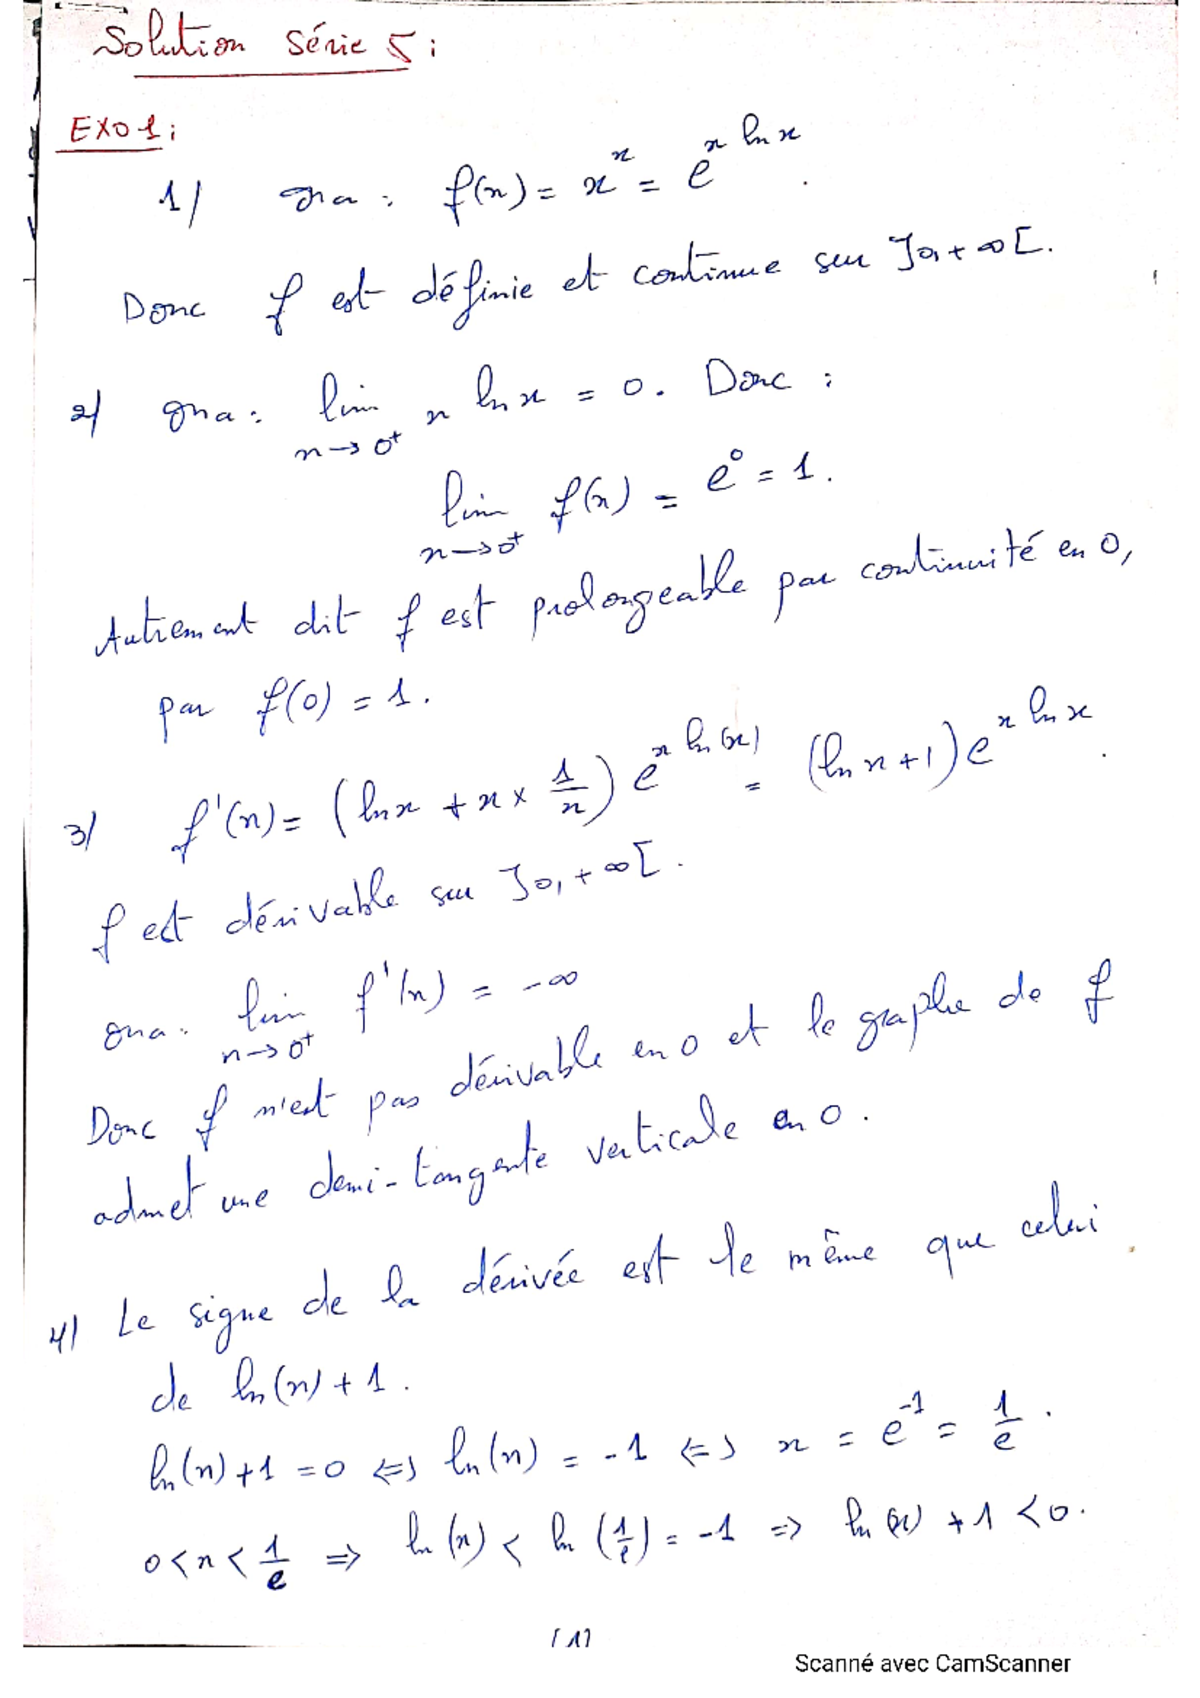 Solution Série 5 :
EXO 1 :
1/ ona : f(x) = x^x = e^{x ln x}.
Donc f est définie et continue sur ]0, +∞[.
2/ ona : lim_{x→0⁺} x ln x = 0. Donc :
lim_{x→0⁺} f(x) = e^0 = 1.
Autrement dit f est prolongeable par continuité en 0,
par f(0) = 1.
3/ f'(x) = (ln x + x × 1/x) e^{x ln(x)} = (ln x + 1) e^{x ln x}.
f est dérivable sur ]0, +∞[.
ona : lim_{x→0⁺} f'(x) = -∞
Donc f n'est pas dérivable en 0 et le graphe de f
admet une demi-tangente verticale en 0.
4/ Le signe de la dérivée est le même que celui
de ln(x) + 1.
ln(x) + 1 = 0 ⟺ ln(x) = -1 ⟺ x = e^{-1} = 1/e.
0 < x < 1/e ⟹ ln(x) < ln(1/e) = -1 ⟹ ln(x) + 1 < 0.
[1]
Scanné avec CamScanner